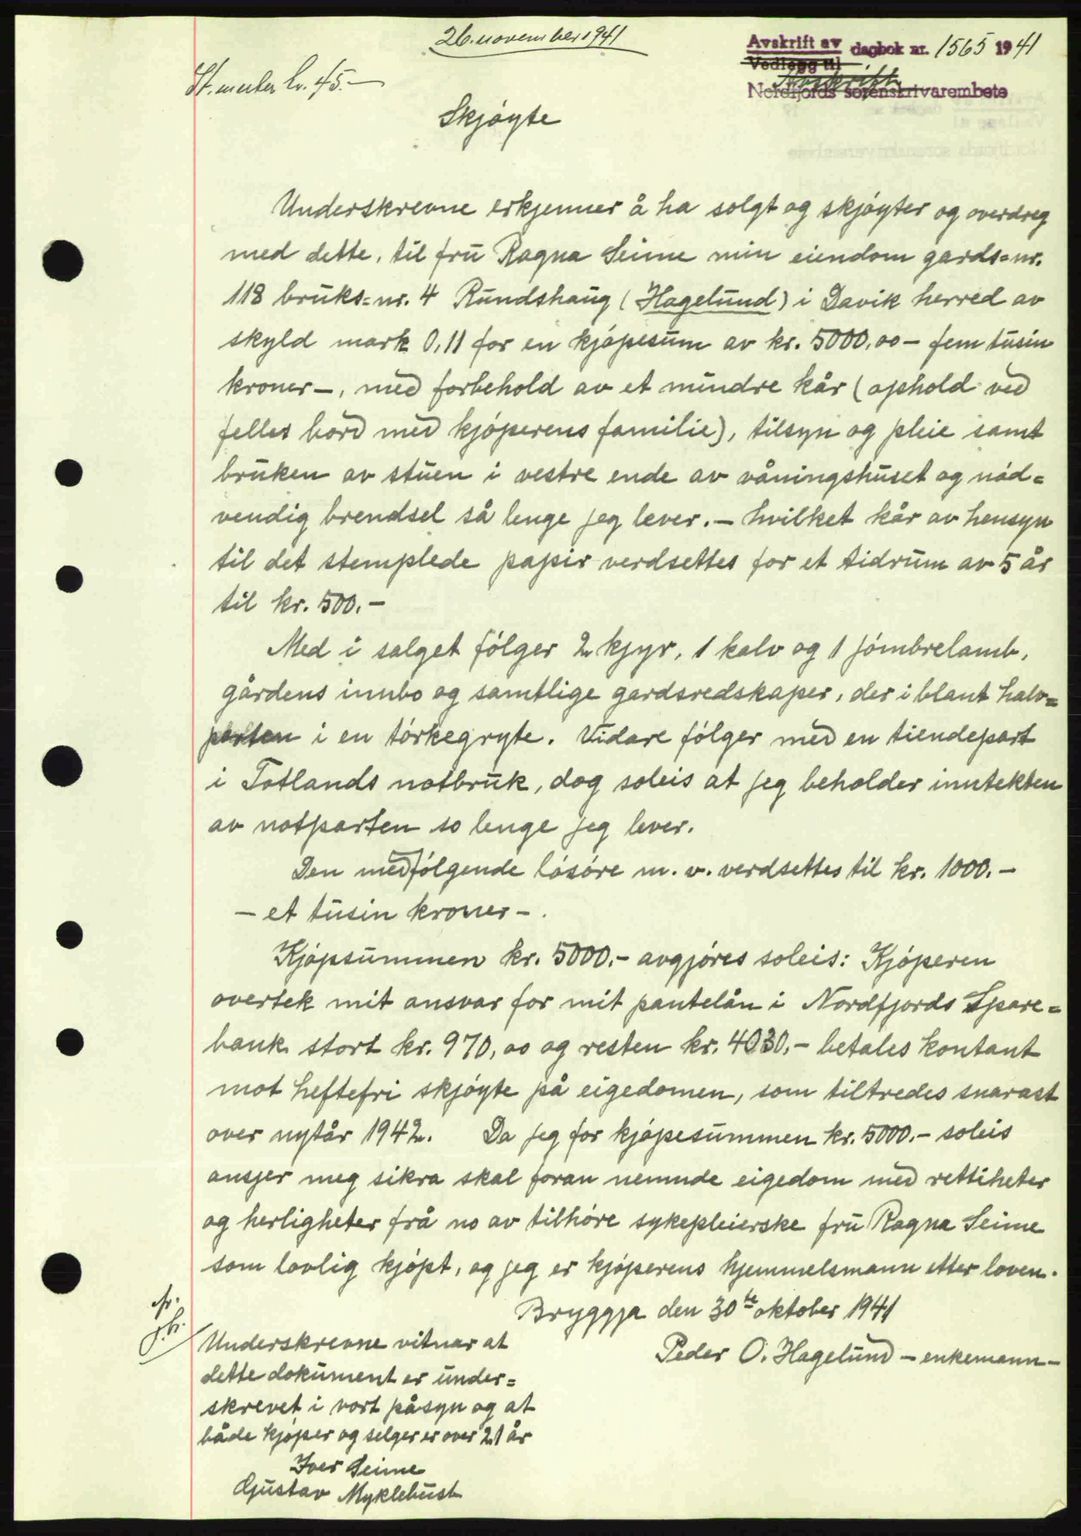 26. november 1941
Avskrift av dagbok nr. 1565 1941
Vedlegg til
Nordfjords sorenskrivarembete
St.merker kr. 45.-
Skjøyte
Underskrevne erkjenner å ha solgt og skjøyter og overdreg
med dette, til fru Ragna Seime min eiendom gards=nr.
118 bruks=nr. 4 Rundshaug (Hagelund) i Davik herred av
skyld mark 0,11 for en kjøpesum av kr. 5000,00 - fem tusin
kroner -, med forbehold av et mindre kår (ophold ved
felles bord med kjøperens familie), tilsyn og pleie samt
bruken av stuen i vestre ende av våningshuset og nød=
vendig brendsel så lenge jeg lever. - hvilket kår av hensyn
til det stemplede papir verdsettes for et tidrum av 5 år
til kr. 500.-
Med i salget følger 2 kjyr, 1 kalv og 1 jømbrelamb,
gårdens innbo og samtlige gardsredskaper, der iblant halv=
parten i en tørkegryte. Vidare følger med en tiendepart
i Totlands notbruk, dog soleis at jeg beholder inntekten
av notparten so lenge jeg lever.
Den medfølgende løsøre m. v. verdsettes til kr. 1000.-
- et tusin kroner -.
Kjøpsummen kr. 5000.- avgjøres soleis: Kjøperen
overtek mit ansvar for mit pantelån i Nordfjords Spare=
bank stort kr. 970,00 og resten kr. 4030,- betales kontant
mot heftefri skjøyte på eigedomen, som tiltredes snarast
over nytår 1942. Da jeg for kjøpesummen kr. 5000.- soleis
ansjer meg sikra skal foran nemnde eigedom med rettiheter
og herligheter frå no av tilhøre sykepleierske fru Ragna Seime
som lovlig kjøpt, og jeg er kjøperens hjemmelsmann etter loven.
Bryggja den 30te oktober 1941
Peder O. Hagelund - enkemann -
Underskrevne vitnar at
dette dokument er under=
skrevet i vort påsyn og at
både kjøper og selger er over 21 år
Iver Seime
Gustav Myklebust